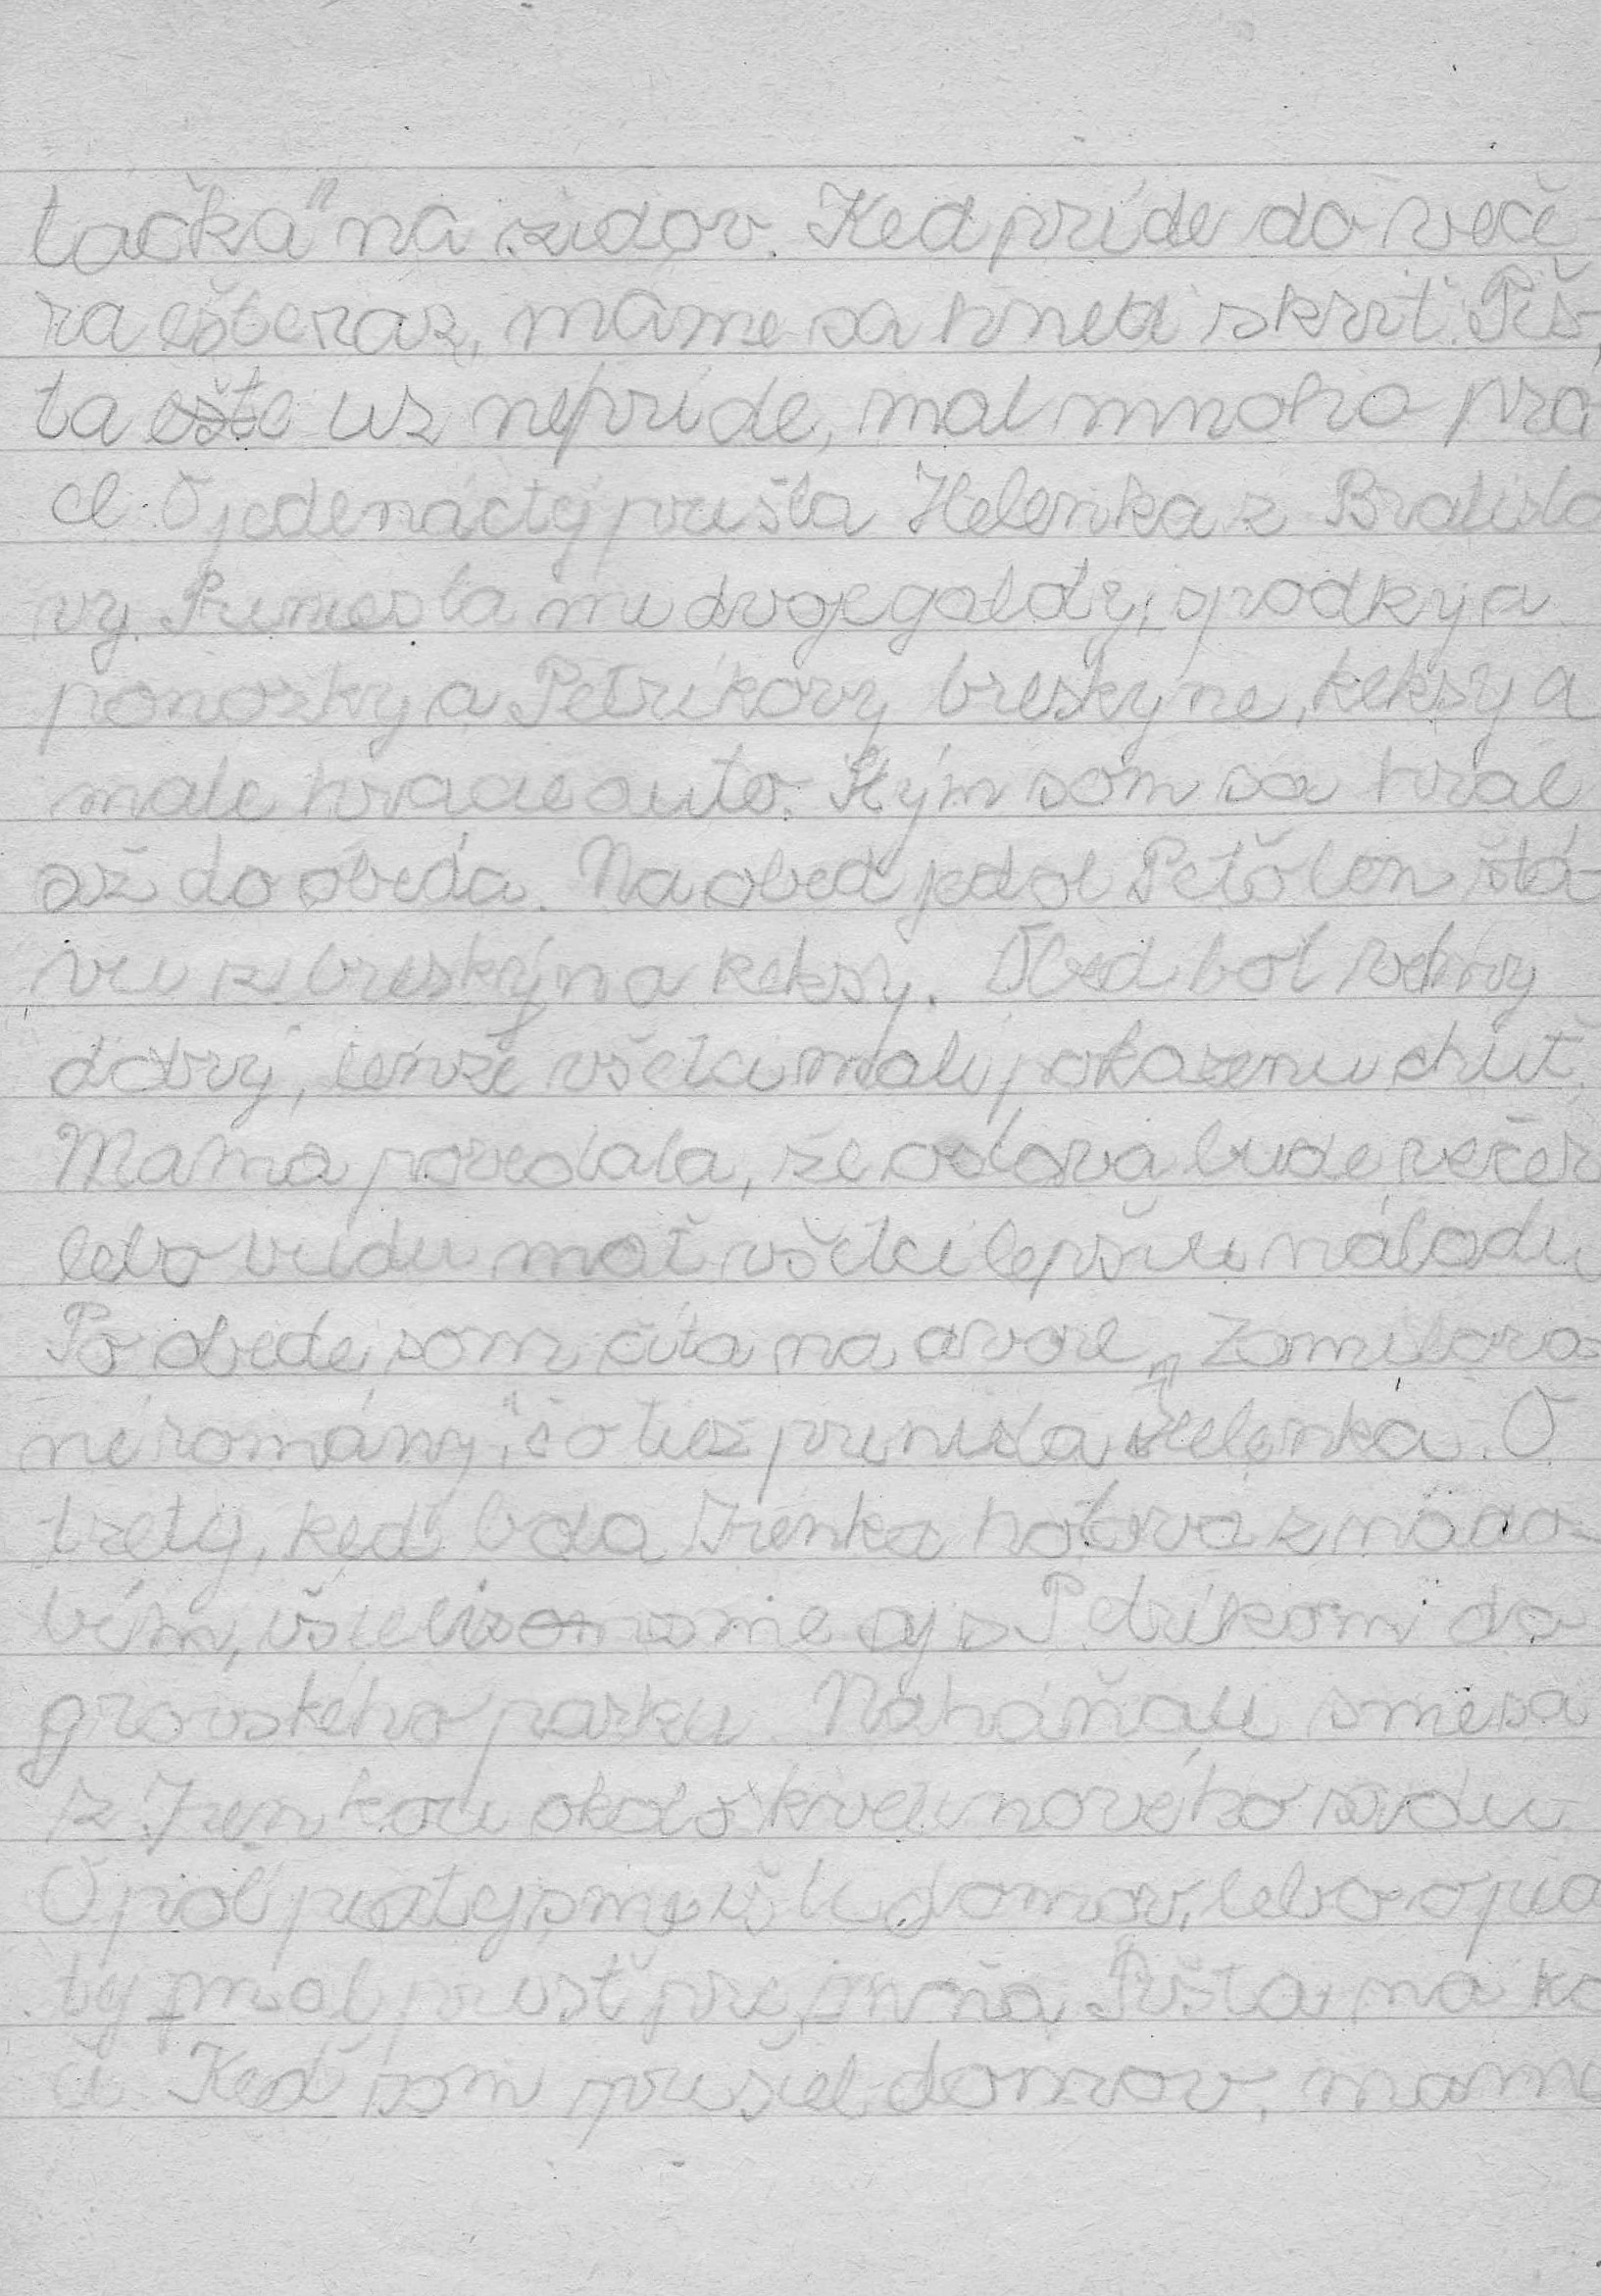 tačka" na židov. Keď príde do veče-
ra ešte raz, máme sa hneď skriť. Piš-
ta ešte už nepríde, mal mnoho prá
ce. O jedenáctej prišla Helenka z Bratisla
vy. Priniesla mi dvoje galdy, spodky a
ponozky a Petríkovy breskyne, keksy a
male hracie auto. S kým som sa hral
až do obeda. Na obed jedol Peťo len šťá-
vu z breskýň a keksy. Obed bol velmy
dobrý, lenže všetci mali pokazenu chuť.
Mama povedala, že oslava bude večer
lebo budu mať všetci lepšiu náladu
Po obede som čítal na dvore „Zamilova-
né romány", čo tiež priniesla Helenka. O
tretej, keď bola Irenka hotova z riado-
vím, išli sme aj s Petríkom do
grovského parku. Naháňali sme sa
z Irenkou okolo kvetinového sadu
O pol piatej sme išli domov, lebo o pia
tej mal prísť pre mňa Pišta na ko
či. Keď som prišiel domov, mama